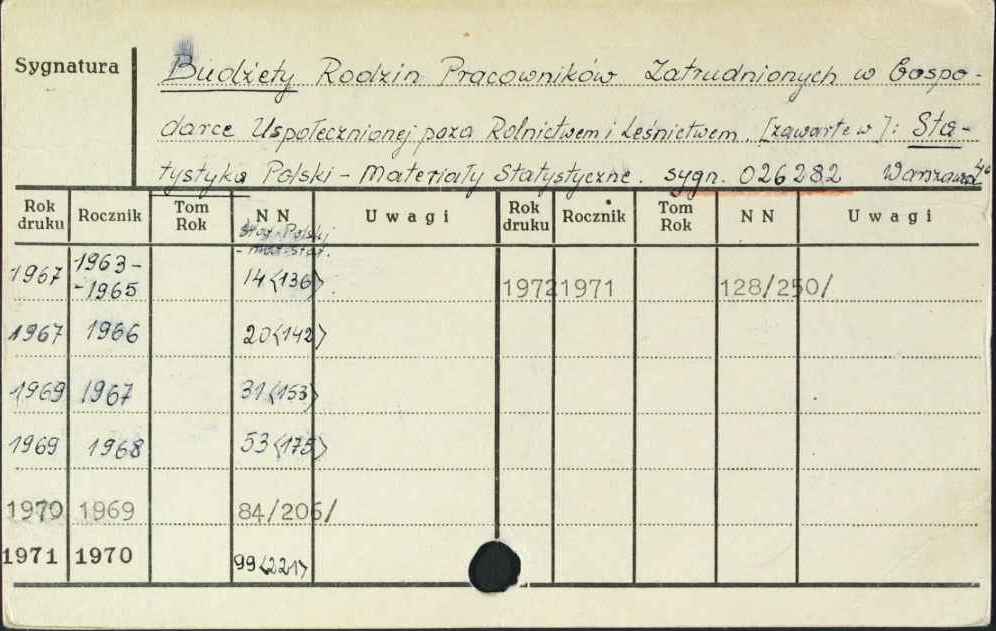 Sygnatura
Budżety Rodzin Pracowników Zatrudnionych w Gospo-
darce Uspołecznionej poza Rolnictwem i Leśnictwem. [zawarte w]: Sta-
tystyka Polski - Materiały Statystyczne. sygn. 026282 Warszawa 4°
Rok druku Rocznik Tom Rok N N Uwagi Rok druku Rocznik Tom Rok N N Uwagi
Stat. Polski
- mat. stat.
1967 1963-
-1965 14<136>. 1972 1971 128/250/
1967 1966 20<142>
1969 1967 31<153>
1969 1968 53<175>
1970 1969 84/206/
1971 1970 99<221>